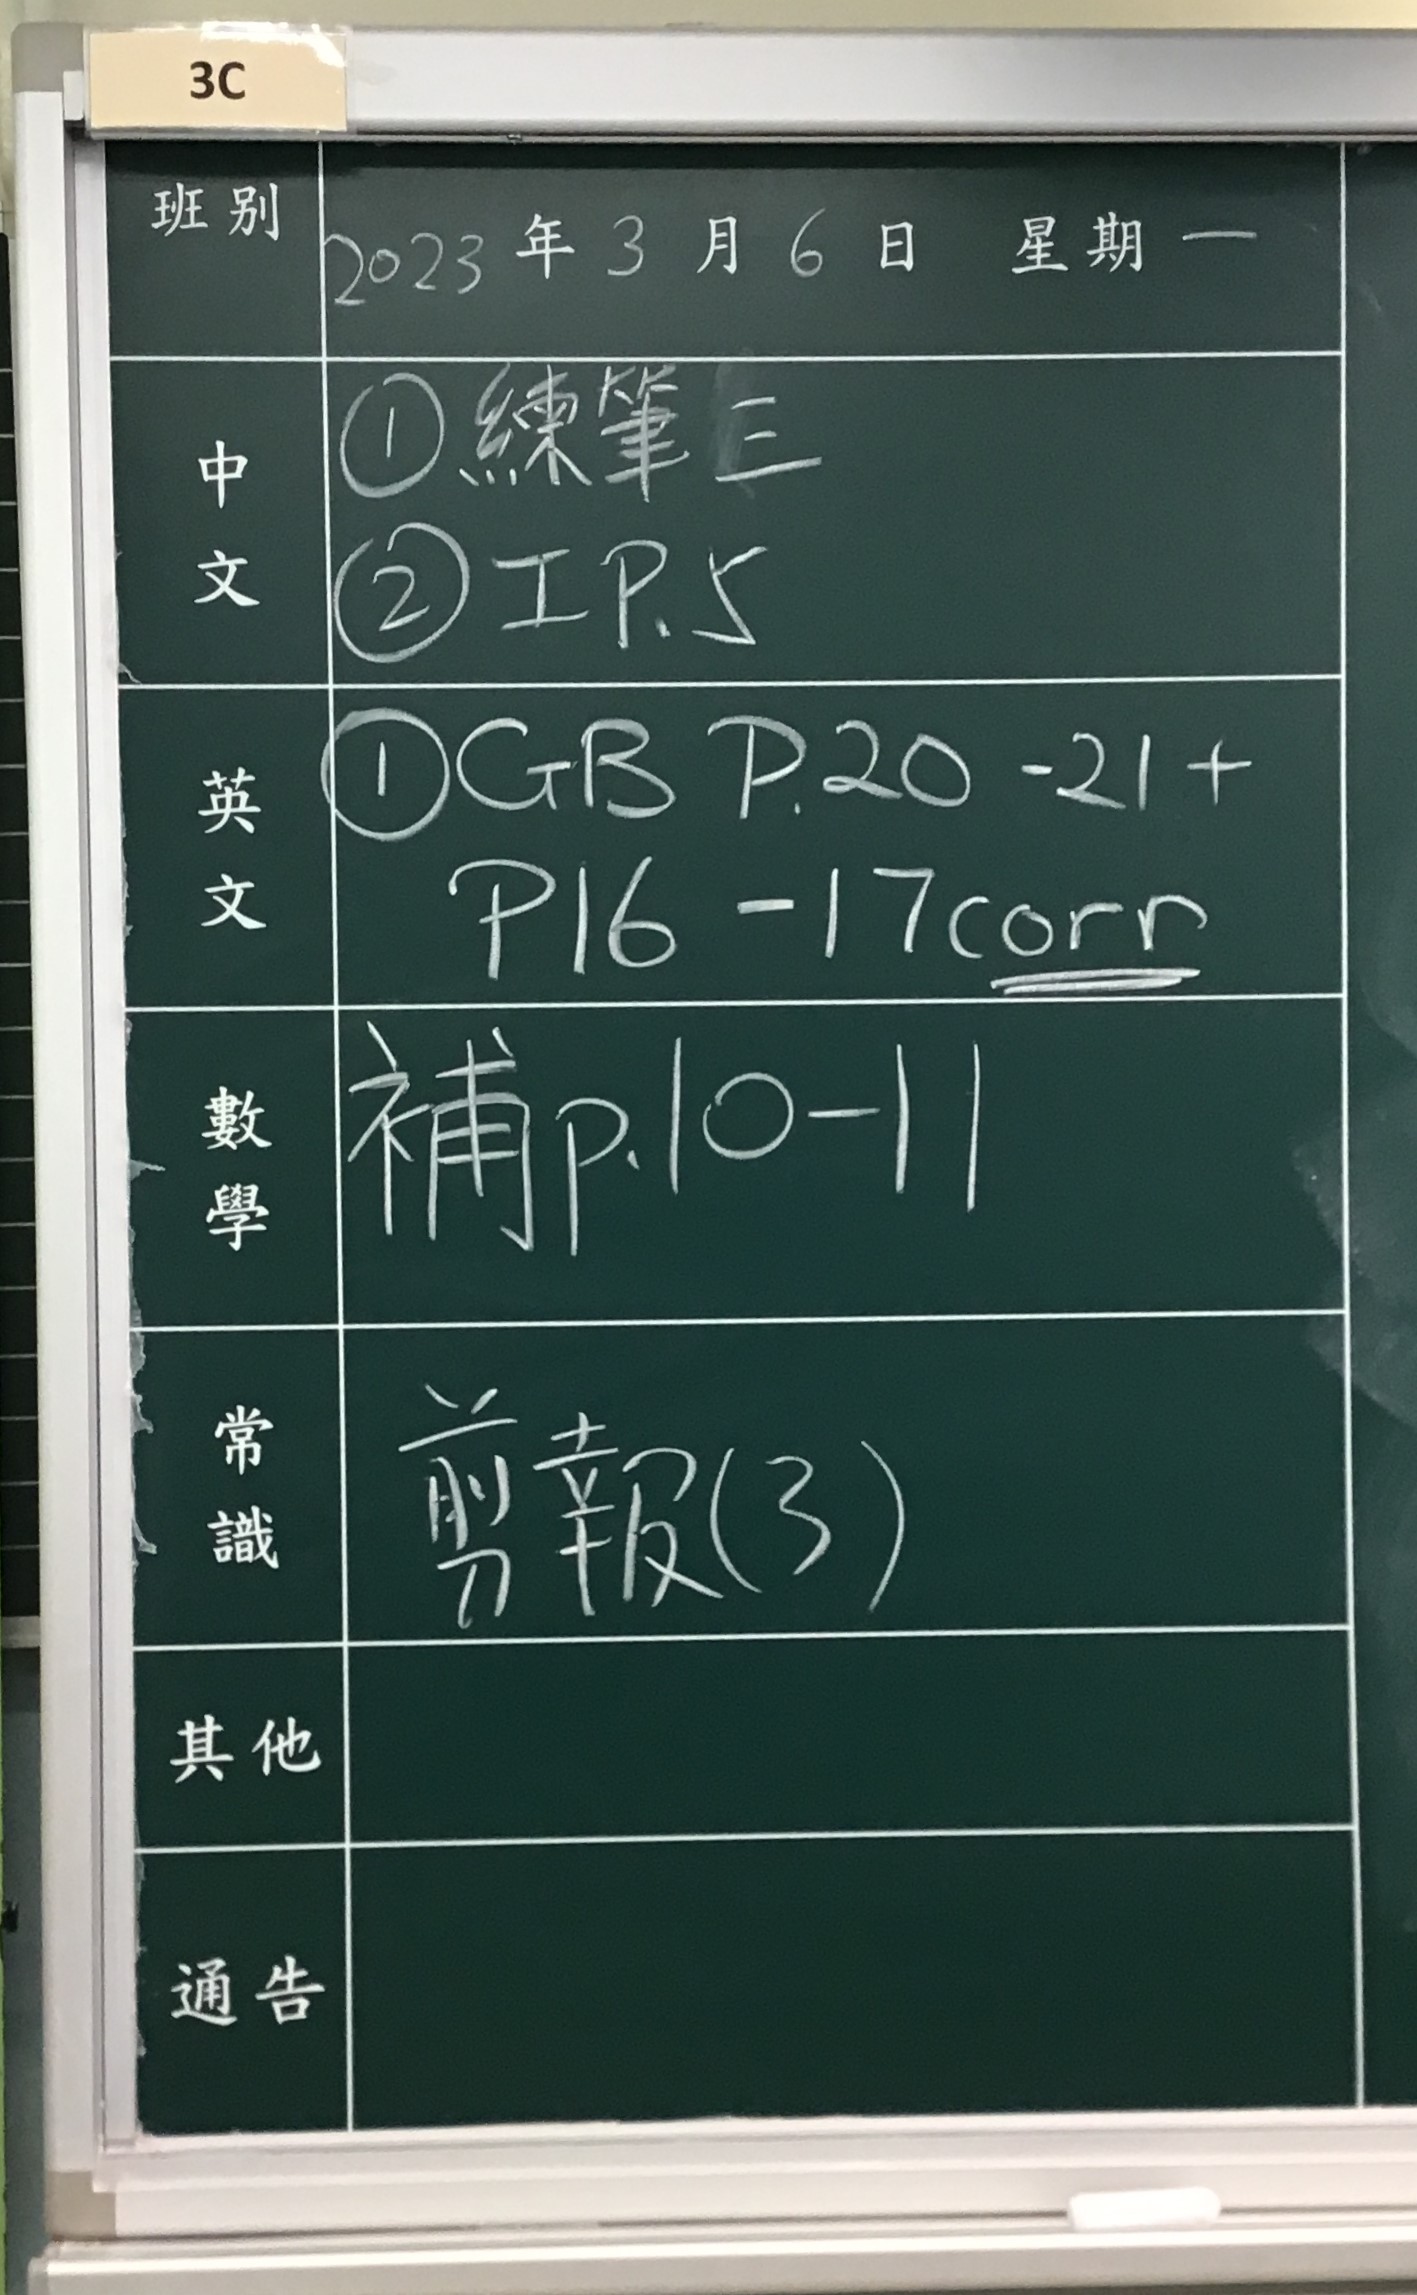 3C
班別
2023年3月6日 星期一
中文
①練筆三
②工P.5
英文
①GB P.20-21+
P16-17corr
數學
補p.10-11
常識
剪報(3)
其他
通告